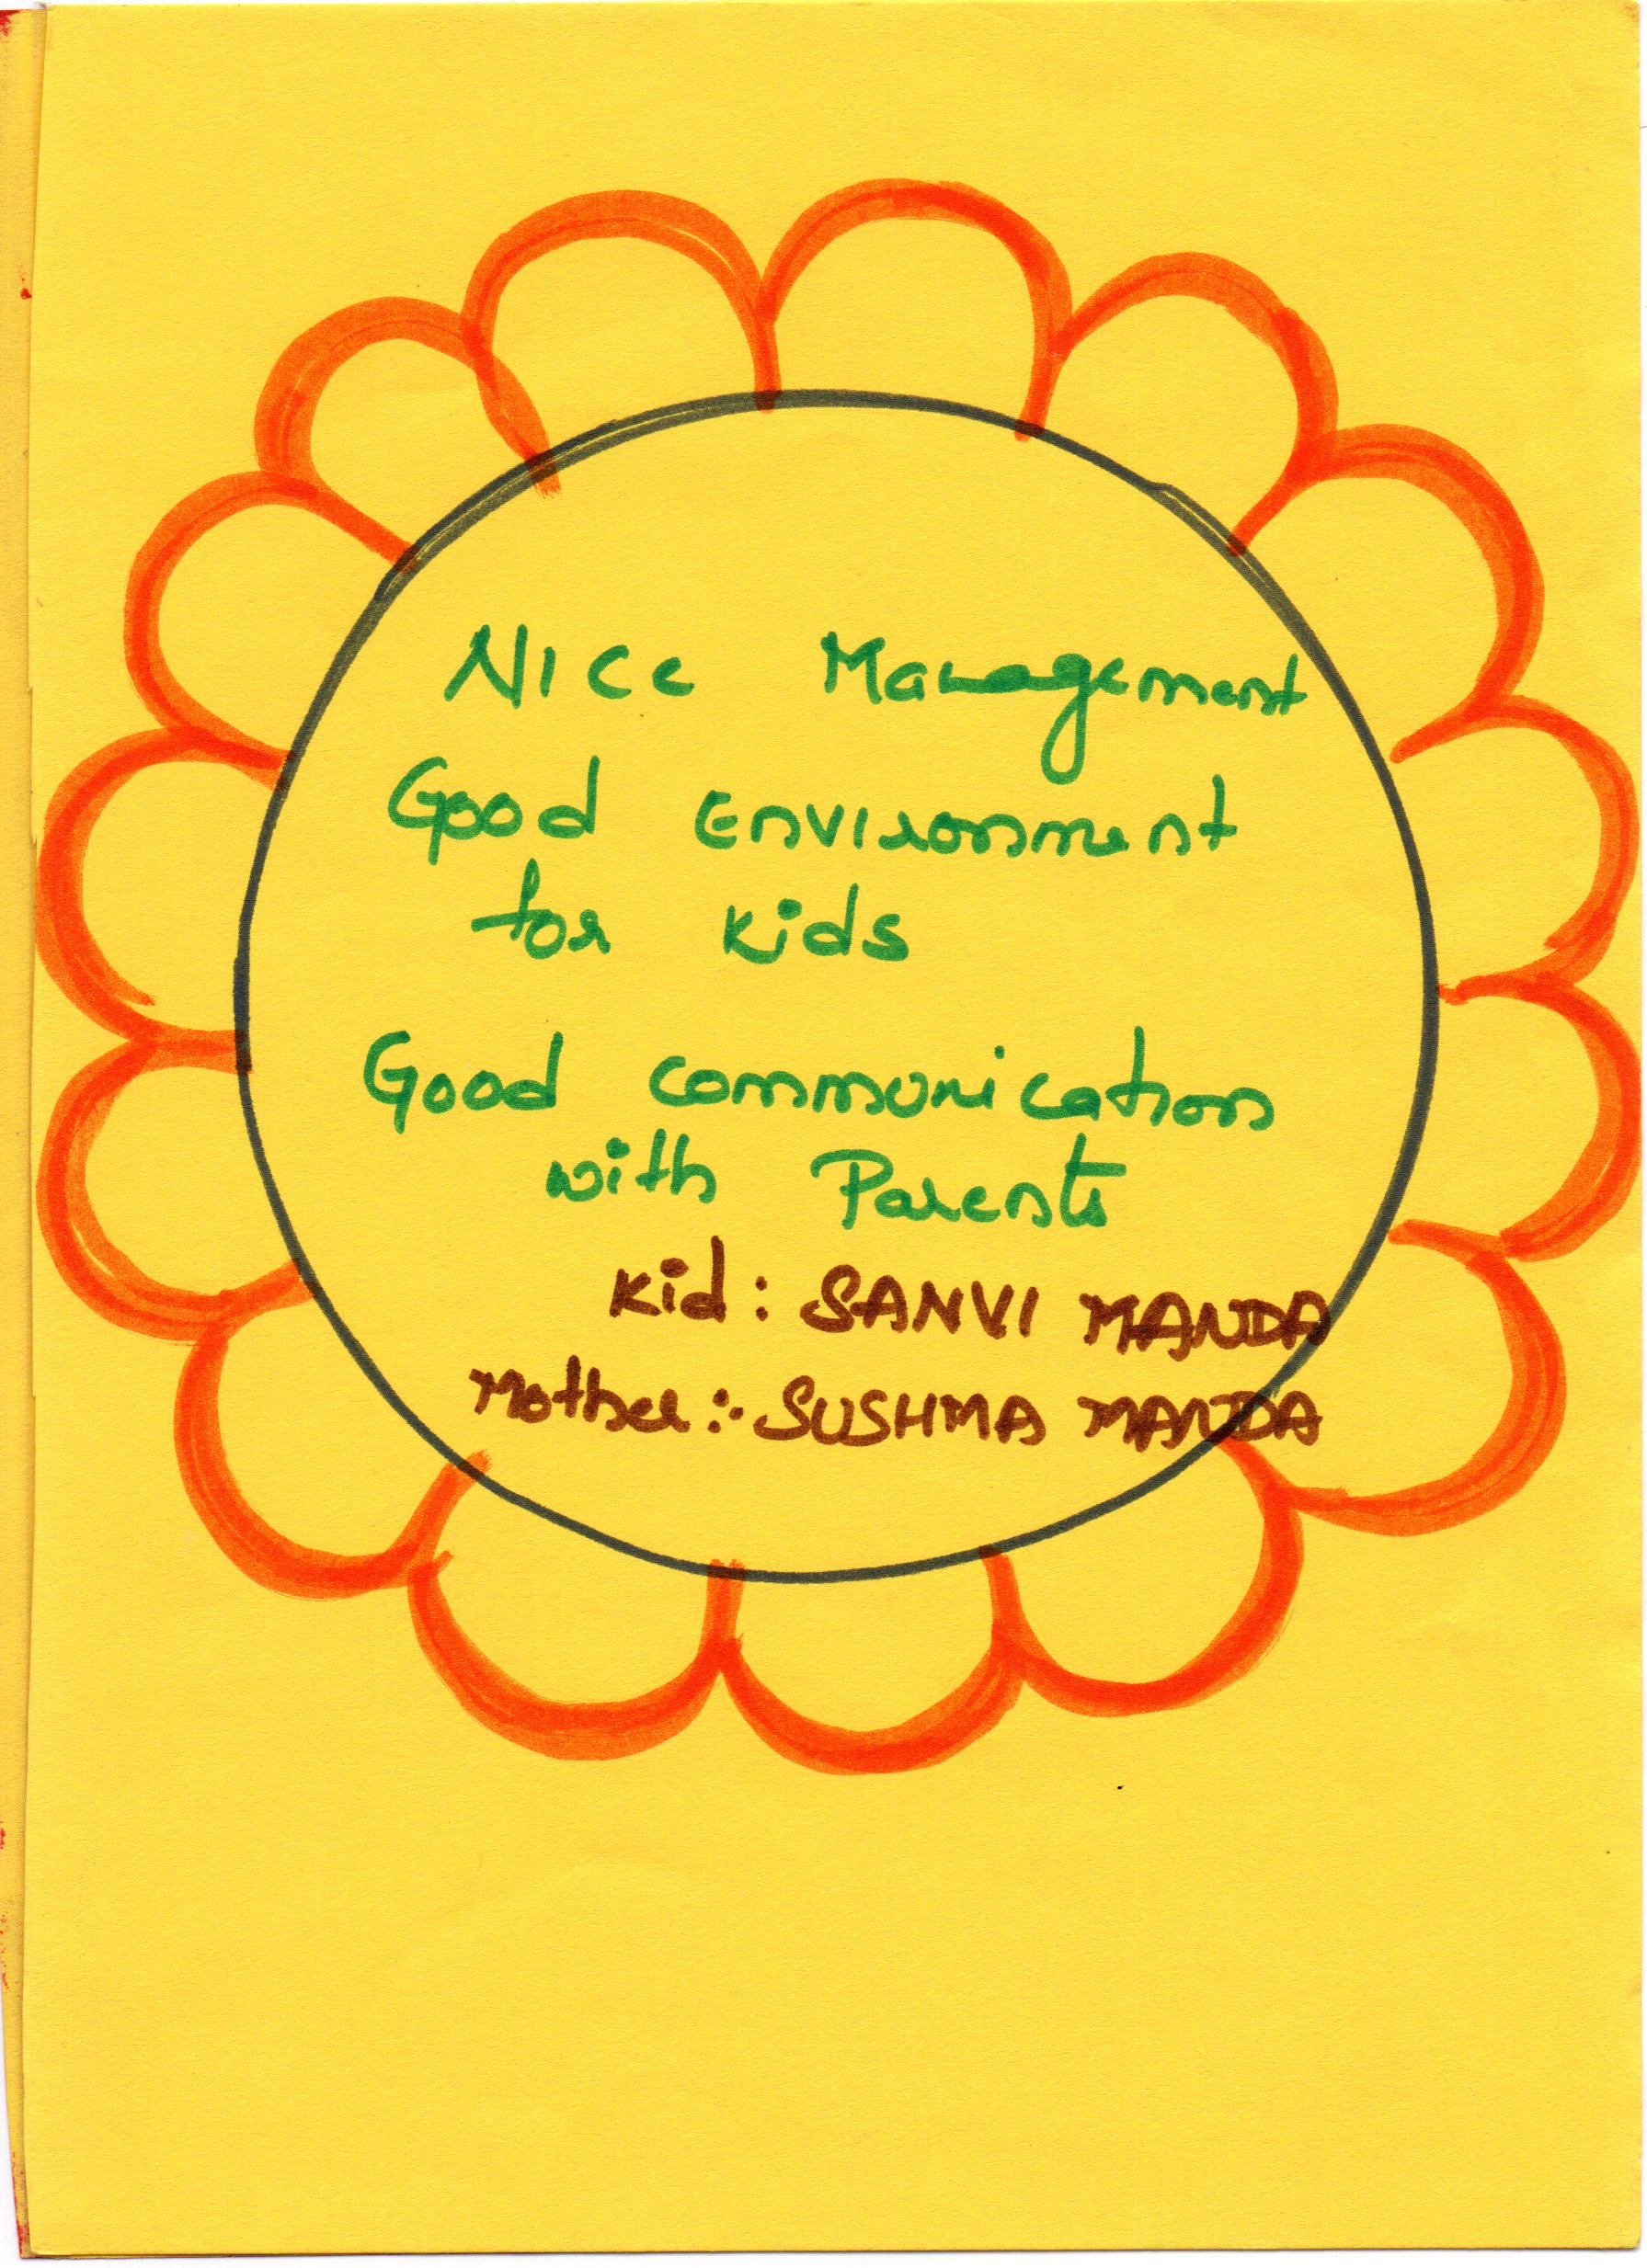 Nice Management
Good Environment
for kids
Good communication
with Parents
Kid : SANVI MANDA
Mother :- SUSHMA MANDA